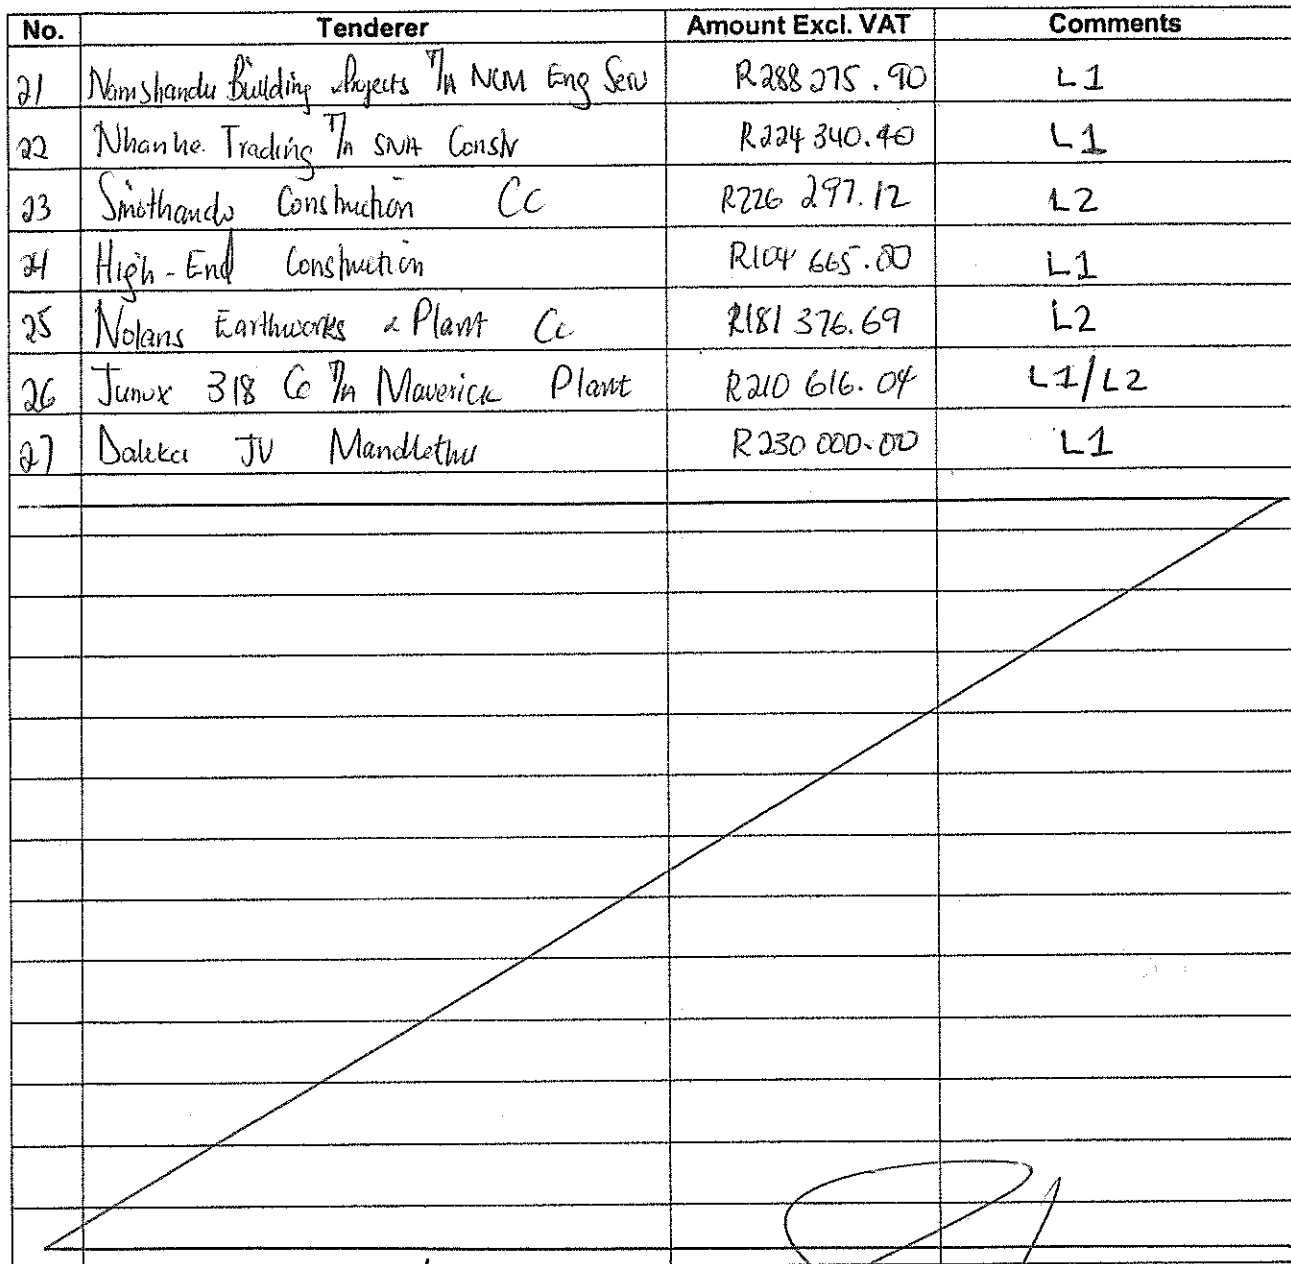 No. Tenderer Amount Excl. VAT Comments
21 Nomshandu Building Projects T/A NCM Eng Serv R288 275.90 L1
22 Nhanhe Trading T/A SNA Constr R224 340.40 L1
23 Sinothando Construction CC R226 297.12 L2
24 High-End Construction R104 665.00 L1
25 Nolans Earthworks & Plant Cc R181 376.69 L2
26 Junox 318 Cc T/A Maverick Plant R210 616.04 L1/L2
27 JV Mandlethu R230 000.00 L1